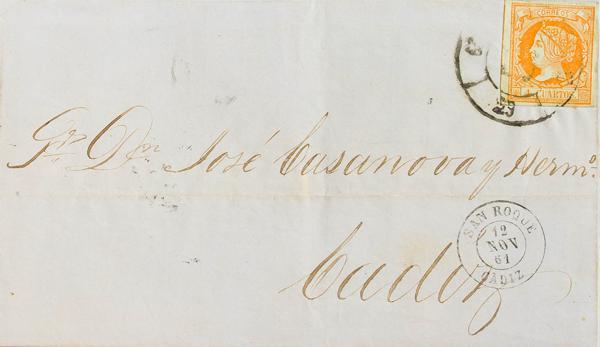 CORREOS
4 CUARTOS
23
Sr. Dn. José Casanova y Hermo.
Cadiz
SAN ROQUE
12
NOV
61
CADIZ